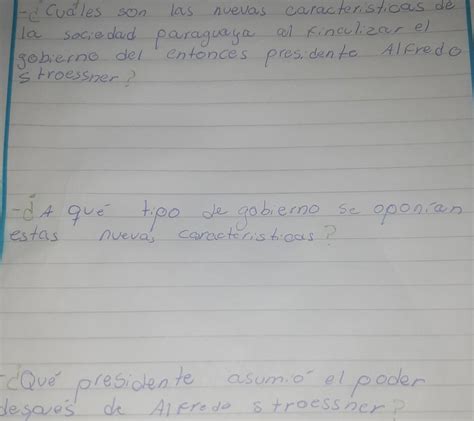 -¿Cuáles son las nuevas características de
la sociedad paraguaya al finculizar el
gobierno del entonces presidente Alfredo
Stroessner?
-¿A qué tipo de gobierno se oponían
estas nuevas características?
-¿Qué presidente asumió el poder
después de Alfredo Stroessner?